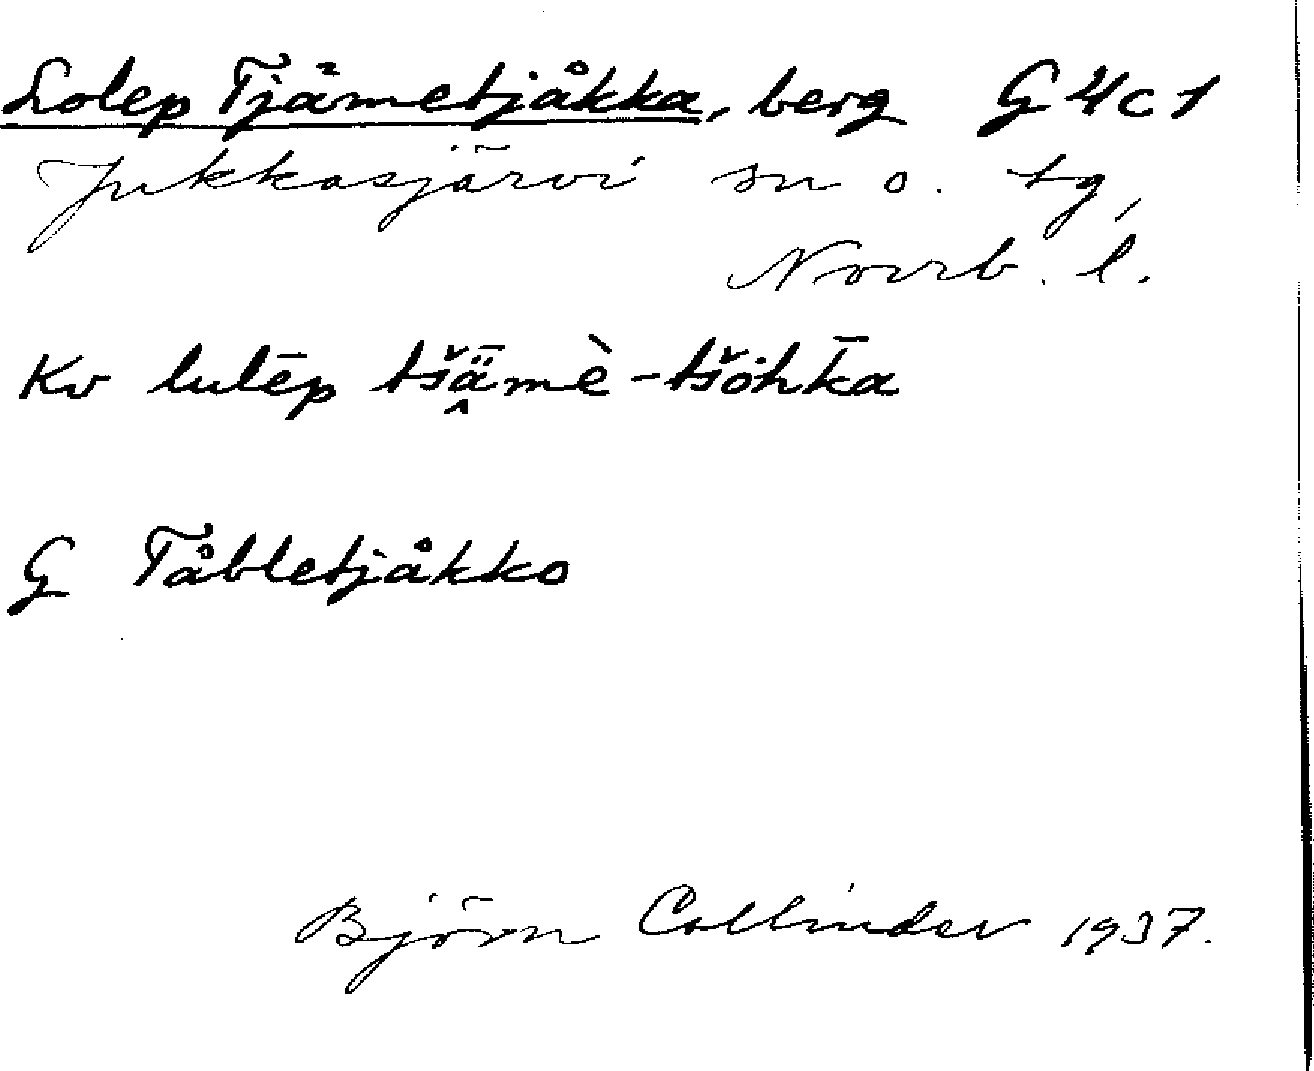 Lolep Tjåmetjåkka, berg G 4 c 1
Jukkasjärvi sn o. tg,
Norrb. l.
Kv lulēp tšǟ̭mè-tšòh̄ka
G Tåbletjåkko
Björn Collinder 1937.